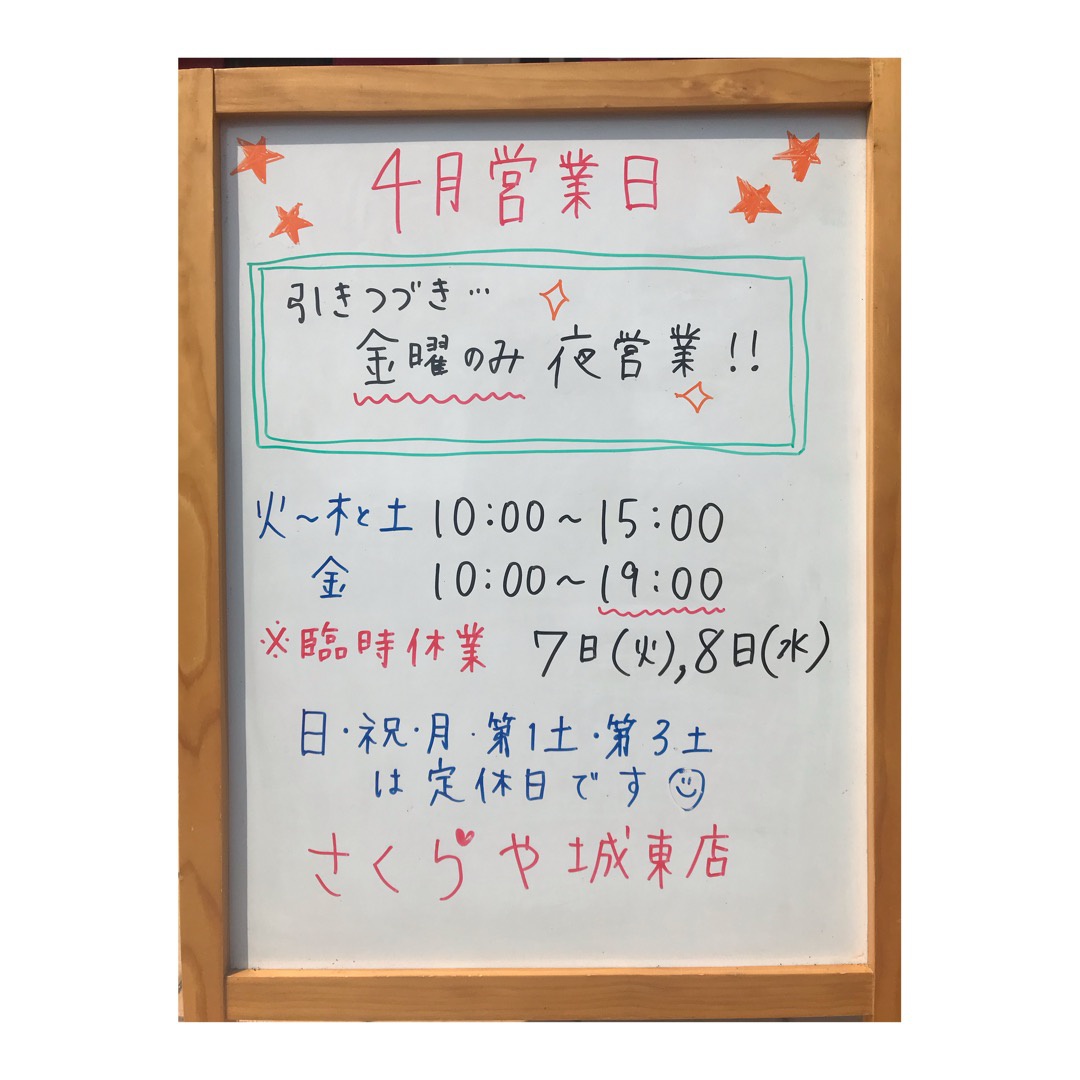 4月営業日
引きつづき…
金曜のみ 夜営業!!
火〜木と土 10:00〜15:00
金 10:00〜19:00
※臨時休業 7日(火),8日(水)
日・祝・月・第1土・第3土
は定休日です
さくらや城東店